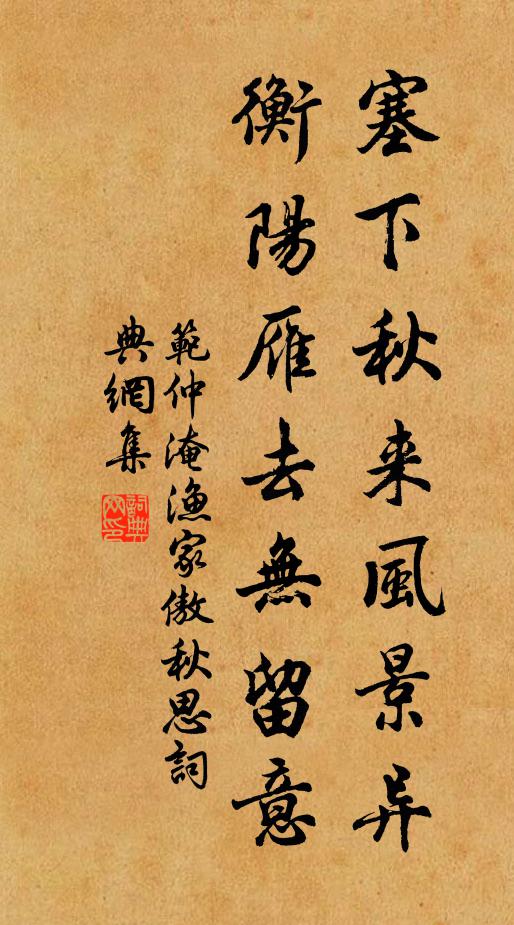 塞下秋来風景异
衡陽雁去無留意
範仲淹漁家傲秋思詞
典網集
詞典网印